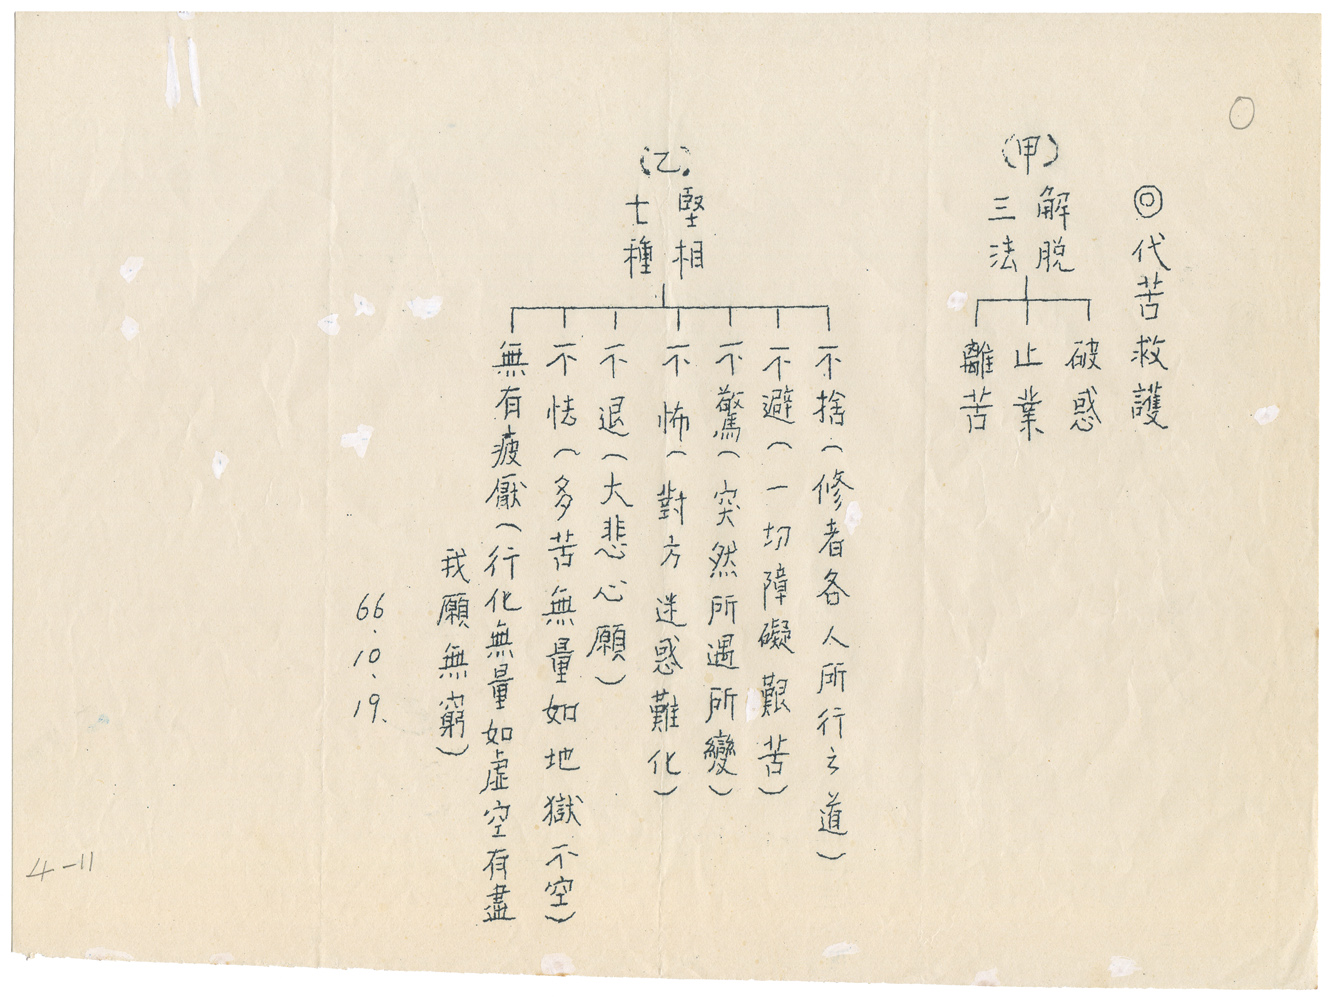 ◎代苦救護
(甲)
解脫
三法
破惑
止業
離苦
(乙)
堅相
七種
不捨(修者各人所行之道)
不避(一切障礙艱苦)
不驚(突然所遇所變)
不怖(對方迷惑難化)
不退(大悲心願)
不怯(多苦無量如地獄不空)
無有疲厭(行化無量如虛空有盡
我願無窮)
66.10.19.
4-11